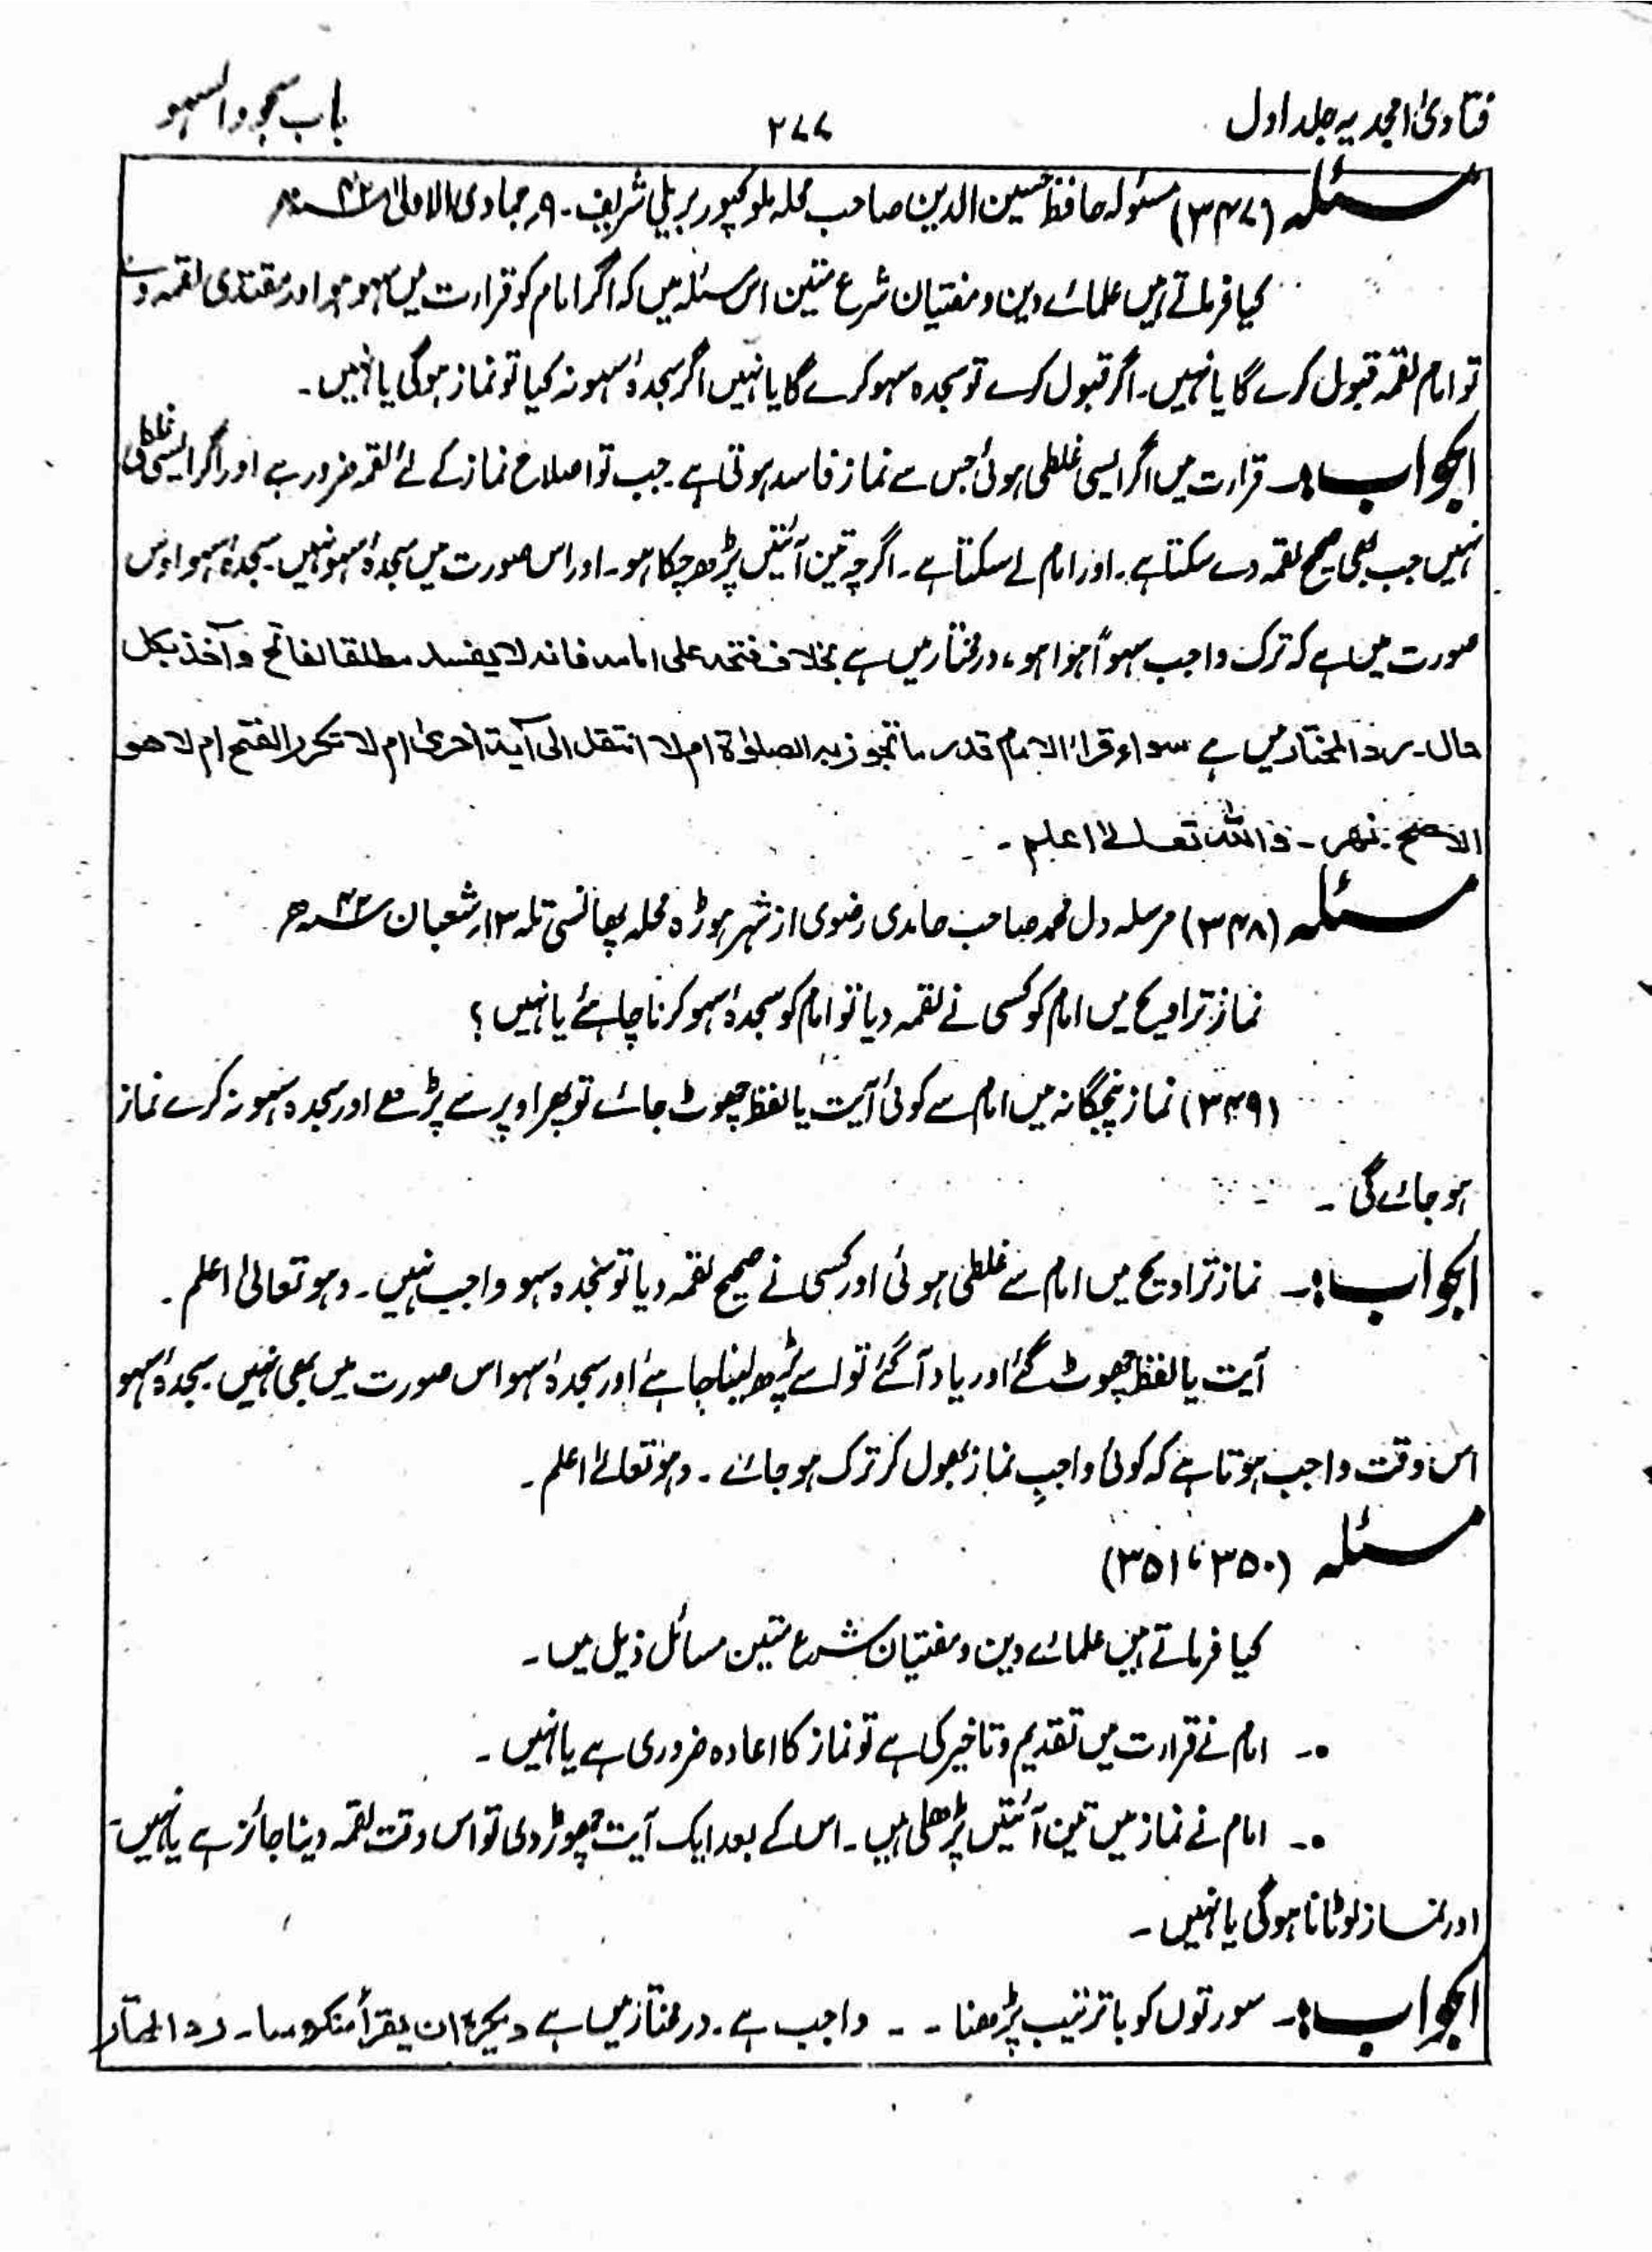 فتاویٰ امجدیہ جلد اول
۲۷۷
باب سجود السہو
مسئلہ (۳۴۷) مسئولہ حافظ حسین الدین صاحب محلہ ملوکپور بریلی شریف۔ ۹؍ جمادی الاولیٰ ۴۲ھ
کیا فرماتے ہیں علمائے دین و مفتیان شرع متین اس مسئلہ میں کہ اگر امام کو قرارت میں سہو ہو اور مقتدی لقمہ دے
تو امام لقمہ قبول کرے گا یا نہیں۔ اگر قبول کرے تو سجدہ سہو کرے گا یا نہیں اگر سجدۂ سہو نہ کیا تو نماز ہوگی یا نہیں۔
الجواب:۔ قرارت میں اگر ایسی غلطی ہوئی جس سے نماز فاسد ہوتی ہے جب تو اصلاح نماز کے لئے لقمہ ضرور ہے اور اگر ایسی غلطی
نہیں جب بھی صحیح لقمہ دے سکتا ہے۔ اور امام لے سکتا ہے۔ اگرچہ تین آئتیں پڑھ چکا ہو۔ اور اس صورت میں سجدۂ سہو نہیں۔ سجدۂ سہو اوس
صورت میں ہے کہ ترک واجب سہواً ہوا ہو، درمختار میں ہے بخلاف فتحہ علی امامہ فانہ لا یفسد مطلقا لفاتح و آخذ بکل
حال۔ ردالمختار میں ہے سواء قرأ الامام قدر ما تجوز بہ الصلوٰۃ ام لا انتقل الی آیۃ اخریٰ ام لا تکرر الفتح ام لا ھو
الاصح۔ نھر۔ واللہ تعالےٰ اعلم۔
مسئلہ (۳۴۸) مرسلہ دل محمد صاحب حامدی رضوی از شہر ہوڑہ محلہ پھانسی تلہ ۱۳؍ شعبان ۴۲ھ
نماز تراویح میں امام کو کسی نے لقمہ دیا تو امام کو سجدۂ سہو کرنا چاہئے یا نہیں؟
(۳۴۹) نماز پنجگانہ میں امام سے کوئی آیت یا لفظ چھوٹ جائے تو پھر اوپر سے پڑھے اور سجدہ سہو نہ کرے نماز
ہو جائے گی۔
الجواب:۔ نماز تراویح میں امام سے غلطی ہوئی اور کسی نے صحیح لقمہ دیا تو سجدہ سہو واجب نہیں۔ وہو تعالیٰ اعلم۔
آیت یا لفظ چھوٹ گئے اور یاد آگئے تو اسے پڑھ لینا چاہئے اور سجدۂ سہو اس صورت میں بھی نہیں۔ سجدۂ سہو
اس وقت واجب ہوتا ہے کہ کوئی واجبِ نماز بھول کر ترک ہو جائے۔ وہو تعالےٰ اعلم۔
مسئلہ (۳۵۰ تا ۳۵۱)
کیا فرماتے ہیں علمائے دین و مفتیان شرع متین مسائل ذیل میں۔
۰۔ امام نے قرارت میں تقدیم و تاخیر کی ہے تو نماز کا اعادہ ضروری ہے یا نہیں۔
۰۔ امام نے نماز میں تین آئتیں پڑھ لی ہیں۔ اس کے بعد ایک آیت چھوڑ دی تو اس وقت لقمہ دینا جائز ہے یا نہیں۔
اور نماز لوٹانا ہوگی یا نہیں۔
الجواب:۔ سورتوں کو با ترتیب پڑھنا ۔ ۔ واجب ہے۔ درمختار میں ہے ویکرہ ان یقرأ منکوسا۔ ردالمحتار